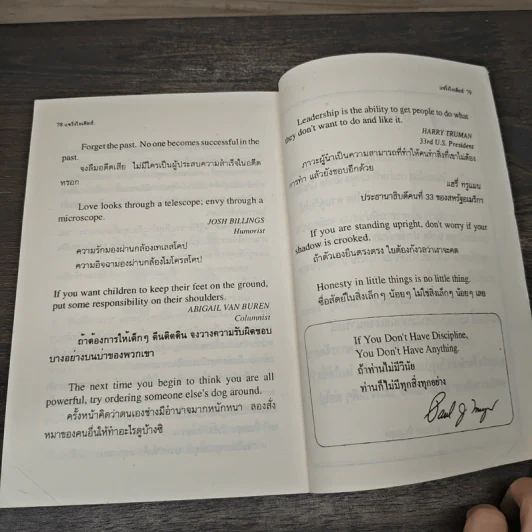 78 แฟร้งโกเดียส์
Forget the past. No one becomes successful in the
past.
จงลืมอดีตเสีย ไม่มีใครเป็นผู้ประสบความสำเร็จในอดีต
หรอก
Love looks through a telescope; envy through a
microscope.
JOSH BILLINGS
Humorist
ความรักมองผ่านกล้องเทเลสโคป
ความอิจฉามองผ่านกล้องไมโครสโคป
If you want children to keep their feet on the ground,
put some responsibility on their shoulders.
ABIGAIL VAN BUREN
Columnist
ถ้าต้องการให้เด็กๆ ตีนติดดิน จงวางความรับผิดชอบ
บางอย่างบนบ่าของพวกเขา
The next time you begin to think you are all
powerful, try ordering someone else's dog around.
ครั้งหน้าคิดว่าตนเองช่างมีอำนาจมากหนักหนา ลองสั่ง
หมาของคนอื่นให้ทำอะไรดูบ้างซิ
79
Leadership is the ability to get people to do what
they don't want to do and like it.
HARRY TRUMAN
33rd U.S. President
ภาวะผู้นำเป็นความสามารถที่ทำให้คนทำสิ่งที่เขาไม่ต้อง
การทำ แล้วยังชอบอีกด้วย
แฮรี่ ทรูแมน
ประธานาธิบดีคนที่ 33 ของสหรัฐอเมริกา
If you are standing upright, don't worry if your
shadow is crooked.
ถ้าตัวเองยืนตรงตรง ไยต้องกังวลว่าเงาจะคด
Honesty in little things is no little thing.
ซื่อสัตย์ในสิ่งเล็กๆ น้อยๆ ไม่ใช่สิ่งเล็กๆ น้อยๆ เลย
If You Don't Have Discipline,
You Don't Have Anything.
ถ้าท่านไม่มีวินัย
ท่านก็ไม่มีทุกสิ่งทุกอย่าง
Paul J. Meyer